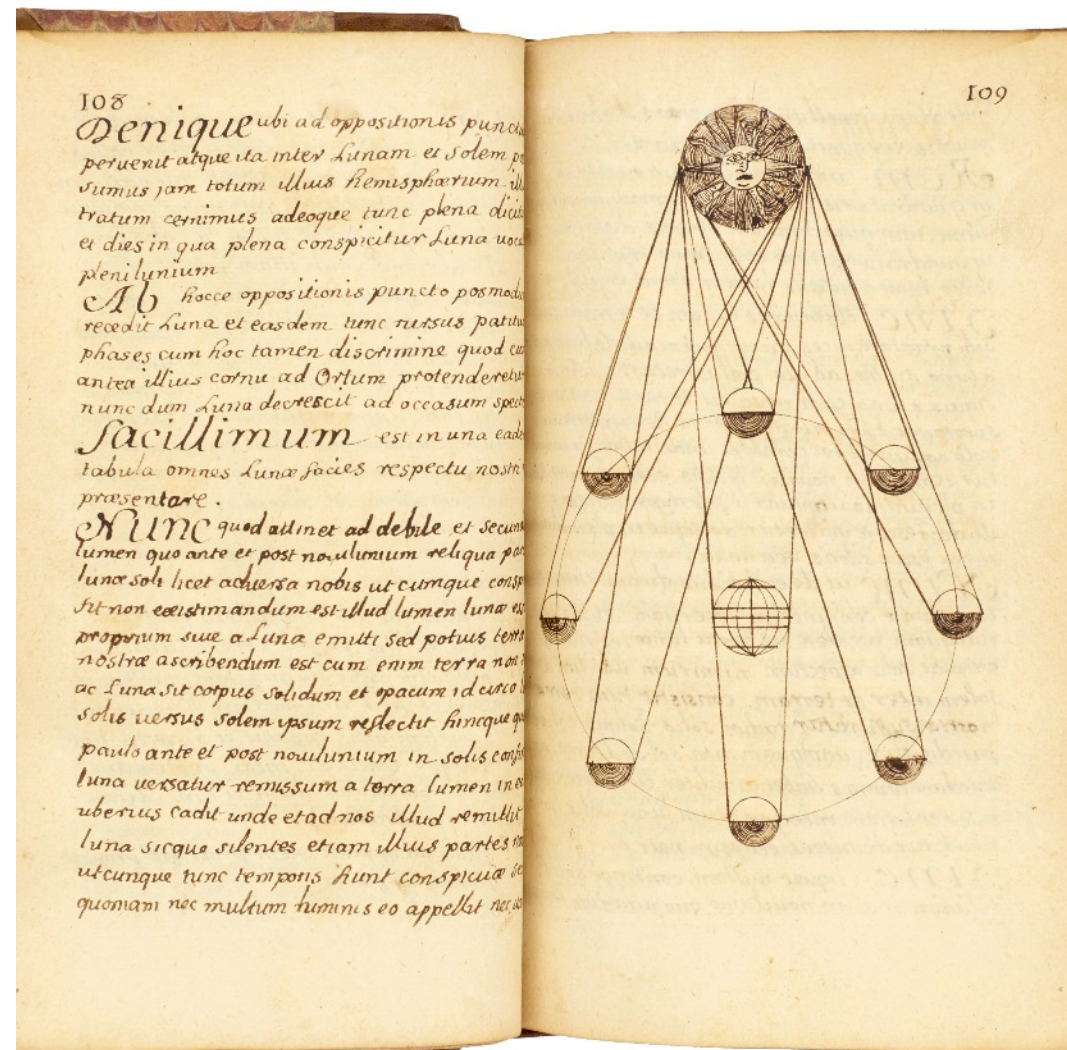 108
Denique ubi ad oppositionis punct
peruenit atque ita inter Lunam et Solem p
sumus jam totum illius hemisphærium ill
tratum cernimus adeoque tunc plena dicit
et dies in qua plena conspicitur Luna uoc
plenilunium
Ab hocce oppositionis puncto posmod
recedit Luna et easdem tunc rursus patitu
phases cum hoc tamen discrimine quod cu
antea illius cornu ad Ortum protenderetu
nunc dum Luna decrescit ad occasum spect
facillimum est in una ead
tabula omnes Lunæ facies respectu nostri
præsentare.
Nunc quod attinet ad debile et secun
lumen quo ante et post nouilunium reliqua pa
lunæ soli licet aduersa nobis utcumque consp
fit non existimandum est illud lumen lunæ es
proprium siue a Luna emitti sed potius terr
nostræ ascribendum est cum enim terra non
ac Luna sit corpus solidum et opacum id circo
solis uersus solem ipsum reflectit hincque qu
paulo ante et post nouilunium in solis conf
luna uersatur remissum a terra lumen in e
uberius cadit unde et ad nos illud remittit
luna sicque silentes etiam illius partes
utcunque tunc temporis fiunt conspicuæ se
quoniam nec multum luminis eo appellit nec
109